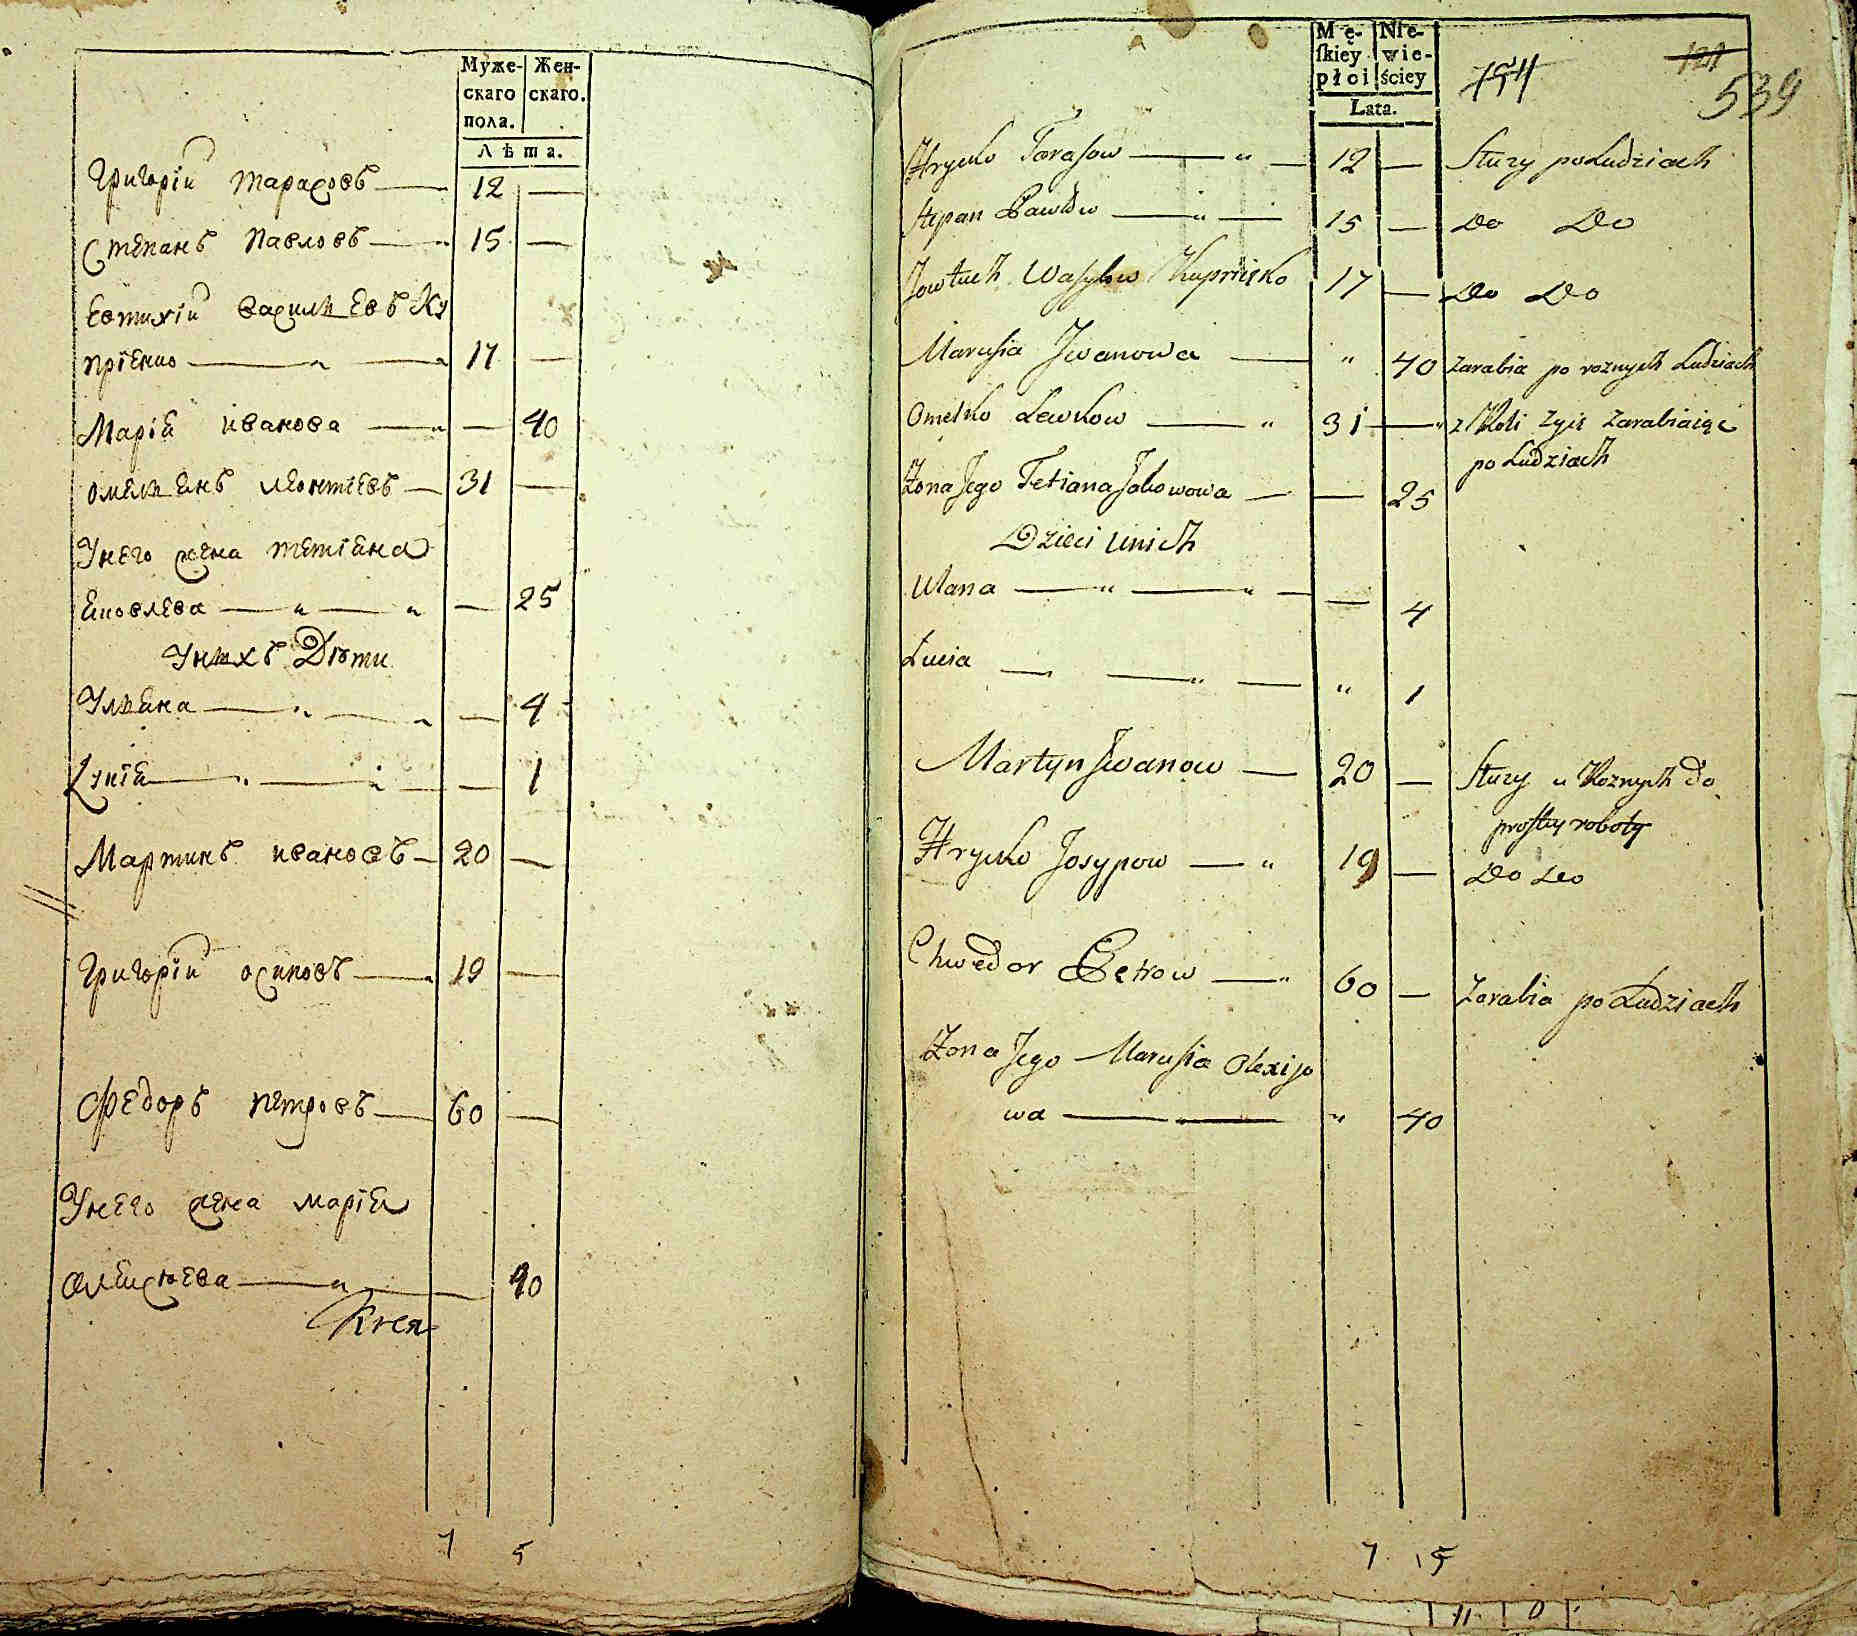 Муже- Жен-
скаго скаго.
пола.
Лѣта.
Григорій Тарасовъ — 12 —
Степанъ Павловъ — 15 —
Евтихій Васильевъ Ку
пріенко — " — " 17 —
Марія Иванова — " — 40
Омельянъ Леонтіевъ — 31 —
У него жена Тетіана
Яковлева — " — " — 25
У нихъ Дѣти
Ульяна — " — " — 4
Лукія — " — " — 1
Мартинъ Ивановъ — 20 —
Григорій Осиповъ — " 19 —
Федоръ Петровъ — 60 —
У него жена Марія
Алексѣева — " — 40
7 5
Mę- Nie-
ſkiey wie-
płci ściey
Lata.
539
Hrycko Tarasow — " — 12 — Służy po Ludziach
Stepan Pawłow — " — 15 — Do Do
Jowtuch Wasylow Kuprieko 17 — Do Do
Marusia Jwanowa — " 40 Zarabia po roznych Ludziach
Omelko Lewkow — " 31 — " z Roli żyię zarabiaiąc
po Ludziach
Żona Jego Tetiana Jakowowa — — 25
Dzieci u nich
Ulana — " — " — — 4
Lucia — — " — " 1
Martyn Jwanow — 20 — Służy u Roznych do
prostey roboty
Hrycko Josypow — " 19 — Do Do
Chwedor Petrow — " 60 — Zarabia po Ludziach
Żona Jego Marusia Olexijo
wa — — " 40
7 5